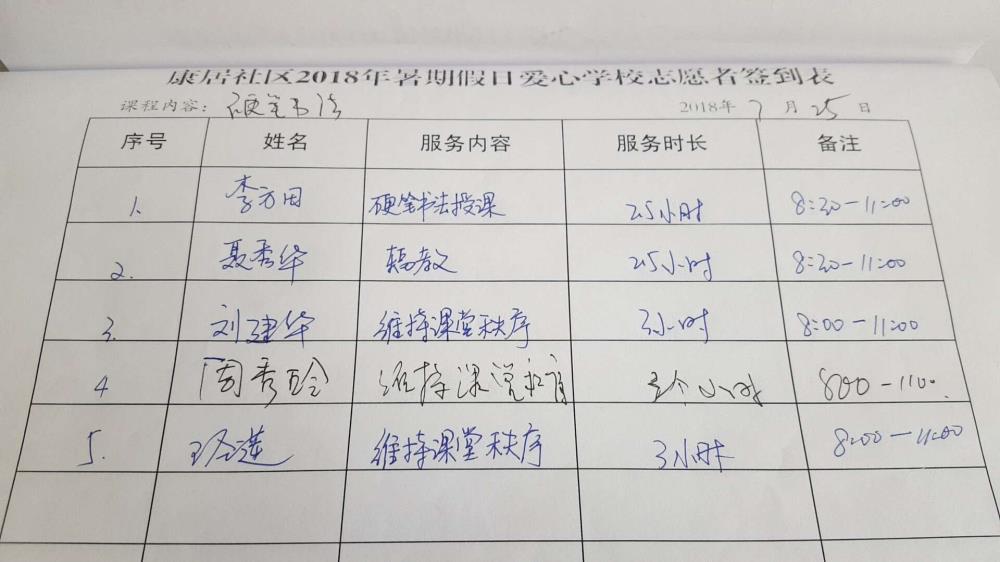 康居社区2018年暑期假日爱心学校志愿者签到表
课程内容：硬笔书法 2018年7月25日
序号 姓名 服务内容 服务时长 备注
1. 李方田 硬笔书法授课 2.5小时 8:30-11:00
2. 聂秀华 辅教 2.5小时 8:30-11:00
3. 刘建华 维持课堂秩序 3小时 8:00-11:00
4 周秀 维持课 3个小时 800-1100
5. 莲 维持课堂秩序 3小时 8:00-11:00